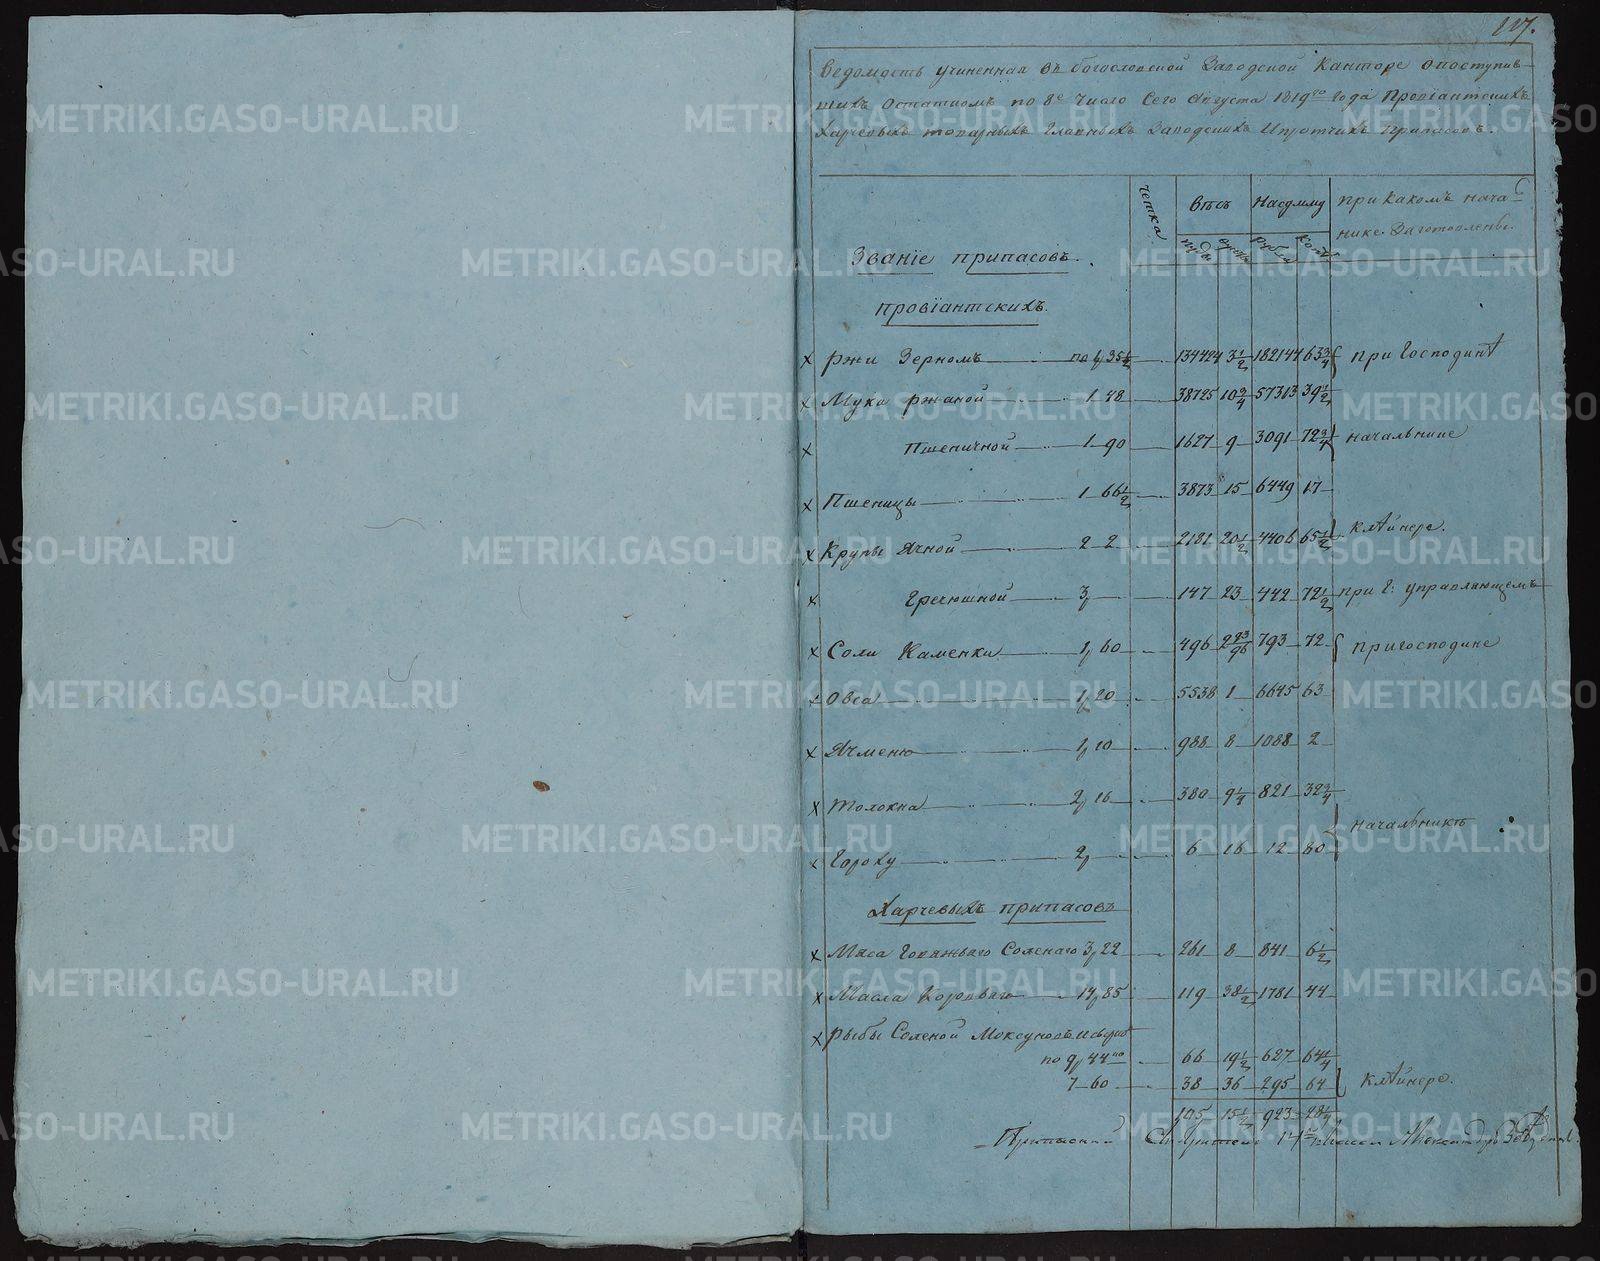 117.
Ведомость учиненная въ богословской Заводской Канторе опоступив-
шихъ Остатномъ по 8е Число Сего Августа 1819го Года Провіантскихъ
Харчевыхъ товарныхъ Главныхъ Заводскихъ Ипротчихъ Припасовъ.
Званіе припасовъ.
четка
Вѣсъ
Насумму
при Какомъ нача-
нике Заготовлены.
пуды
рубли
провіантскихъ.
x Ржи Зерномъ по 1 35½ 134424 3½ 182144 63¾ при Господинѣ
x Муки ржаной 1 48 38725 10¾ 57313 39½
x Пшеничной 1 90 1627 9 3091 72¾ начальнике
x Пшеницы 1 66½ 3873 15 6449 17
x Крупы Ячной 2 2 2181 20½ 4406 65½ клѣйнере.
x Гречюшной 3 147 23 442 72½ при Г: управляющемъ
x Соли Каменки 1 60 496 2 23/96 793 72 пригосподине
x Овса 1 20 5538 1 6645 63
x Ячменю 1 10 988 8 1088 2
x Толокна 2 16 380 9¼ 821 32¾
начальникѣ
x Гороху 2 6 16 12 80
Харчевыхъ припасовъ
x Мяса Говяжьяго Соленаго 3 22 261 8 841 6½
x Масла Коровьяго 14 85 119 38½ 1781 44
x Рыбы Соленой Моксуновъ
по 9 44 66 19½ 627 64¼
7 60 38 36 295 64 Клѣйнере.
105 15½ 923 28¼
класса Александръ
METRIKI.GASO-URAL.RU